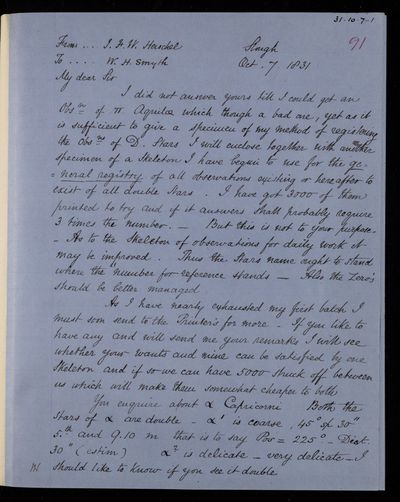 31-10-7-1
From ... J. F. W. Herschel Slough 91
To .... W. H. Smyth Oct. 7 1831
My dear Sir
I did not answer yours till I could get an
Obsn of π Aquilæ which though a bad one, yet as it
is sufficient to give a specimen of my method of registering
the Obsns of D. Stars I will enclose together with another
specimen of a Skeleton I have begun to use for the ge
= neral registry of all observations existing or hereafter to
exist of all double Stars . I have got 3000 of them
printed to try and if it answers shall probably require
3 times the number. — But this is not to your purpose.
- As to the Skeleton of observations for daily work it
may be improved . Thus the Stars name ought to stand
where the number for reference stands — Also the Zero's
should be better managed
As I have nearly exhausted my first batch I
must soon send to the Printer's for more - If you like to
have any and will send me your remarks I will see
whether your wants and mine can be satisfied by one
Skeleton and if so we can have 5000 struck off between
us which will make them somewhat cheaper to both
You enquire about α Capricorni Both the
stars of α are double - α' is coarse, 45° sf 30"
5.th and 9.10 m that is to say Pos = 225° - Dist.
30" (estim) α² is delicate - very delicate - I
should like to know if you see it double